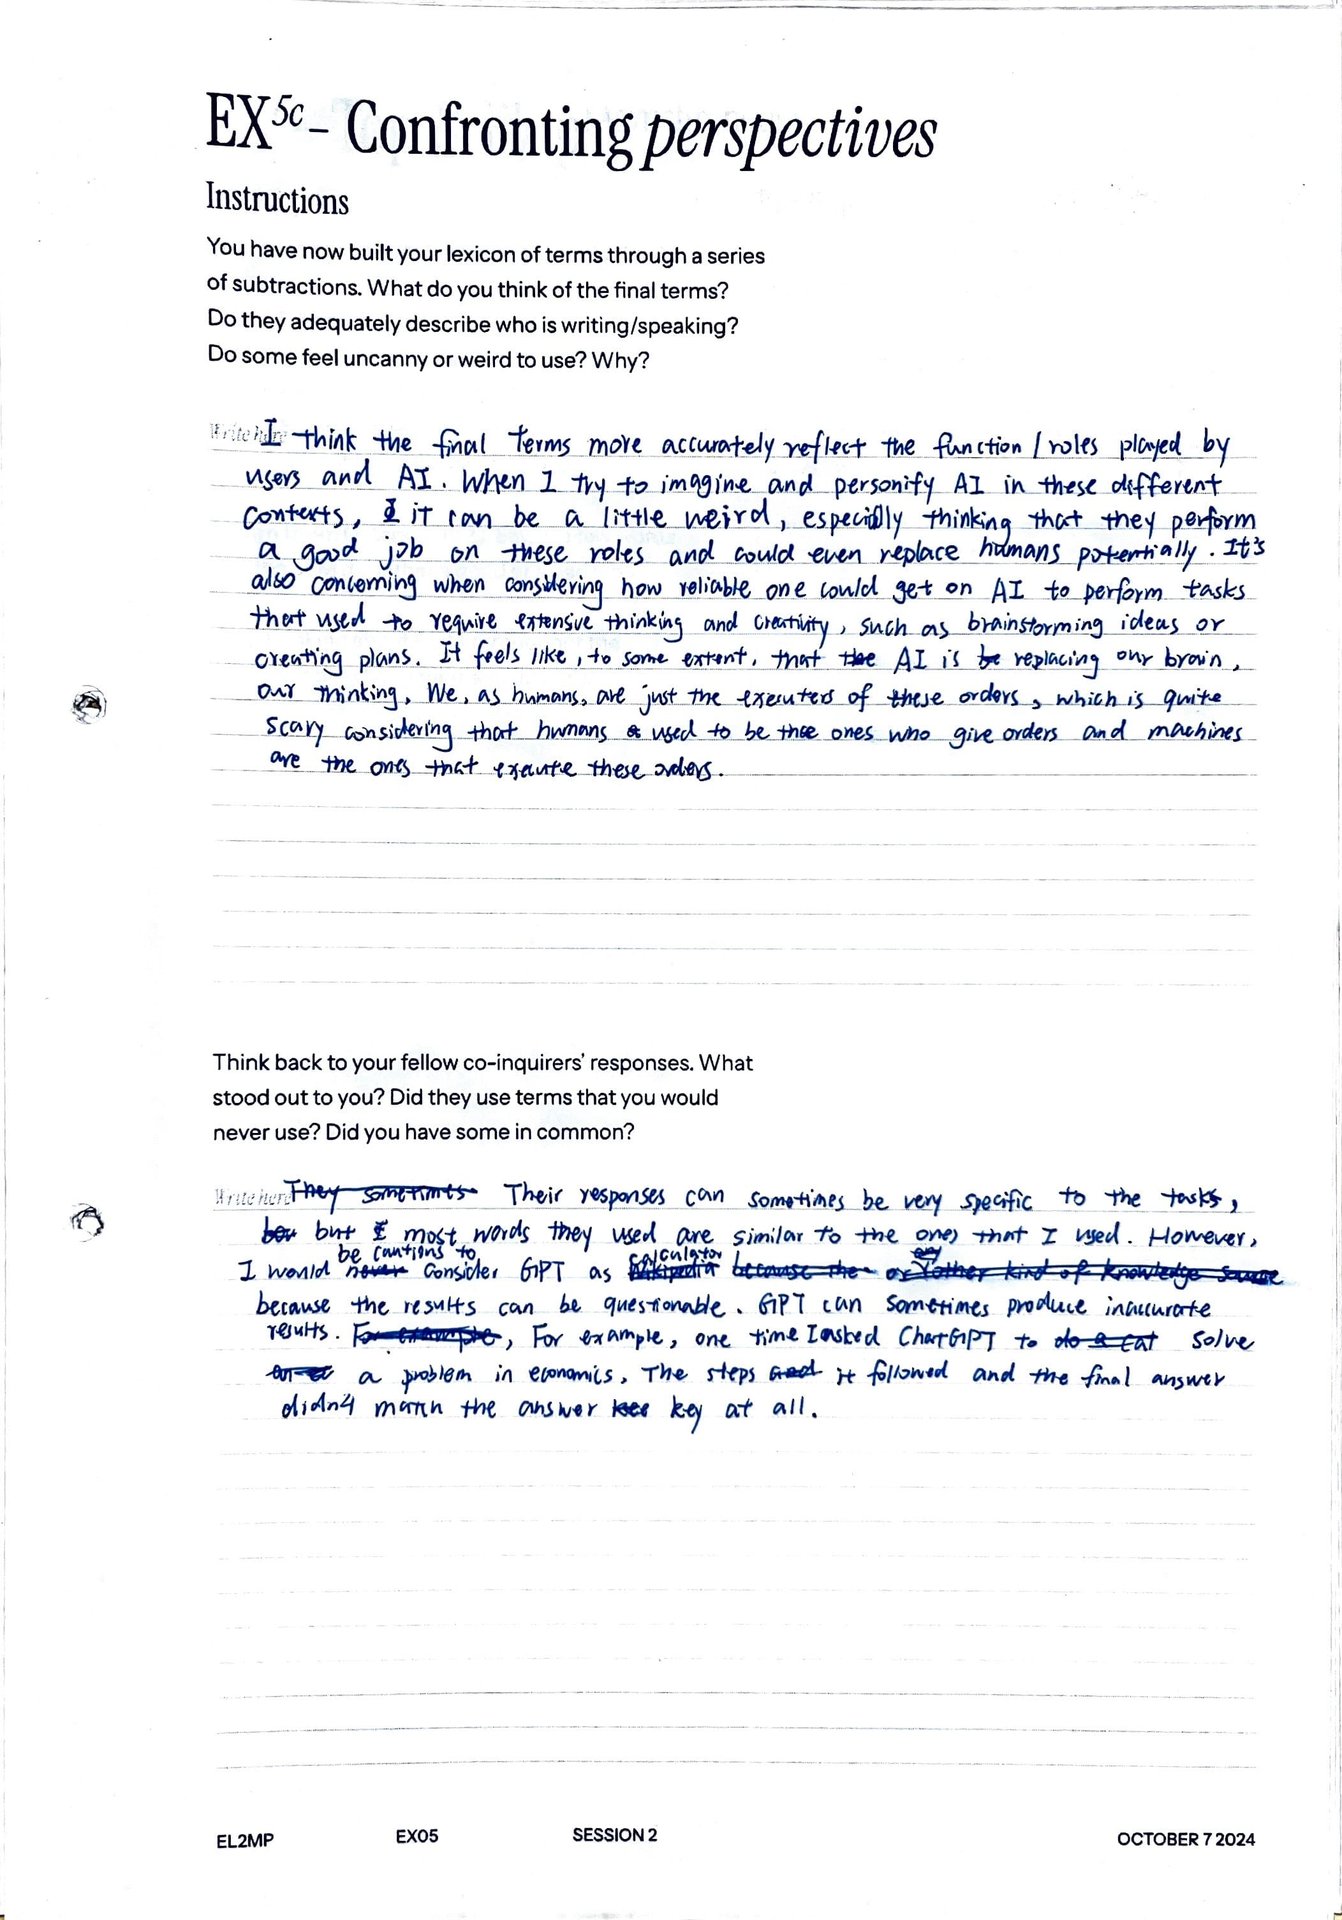 EX5c – Confronting perspectives
Instructions
You have now built your lexicon of terms through a series
of subtractions. What do you think of the final terms?
Do they adequately describe who is writing/speaking?
Do some feel uncanny or weird to use? Why?
Write here
I think the final terms more accurately reflect the function / roles played by
users and AI. When I try to imagine and personify AI in these different
contexts, I it can be a little weird, especially thinking that they perform
a good job on these roles and could even replace humans potentially. It's
also concerning when considering how reliable one could get on AI to perform tasks
that used to require extensive thinking and creativity, such as brainstorming ideas or
creating plans. It feels like, to some extent, that the AI is be replacing our brain,
our thinking. We, as humans, are just the executers of these orders, which is quite
scary considering that humans used to be the ones who give orders and machines
are the ones that execute these orders.
Think back to your fellow co-inquirers' responses. What
stood out to you? Did they use terms that you would
never use? Did you have some in common?
Write here
They sometimes Their responses can sometimes be very specific to the tasks,
but I most words they used are similar to the ones that I used. However,
be cautious to calculator any
I would never consider GPT as Wikipedia because the or other kind of knowledge source
because the results can be questionable. GPT can sometimes produce inaccurate
results. For example, For example, one time I asked ChatGPT to do a cat solve
a problem in economics. The steps and it followed and the final answer
didn't match the answer key at all.
EL2MP EX05 SESSION 2 OCTOBER 7 2024